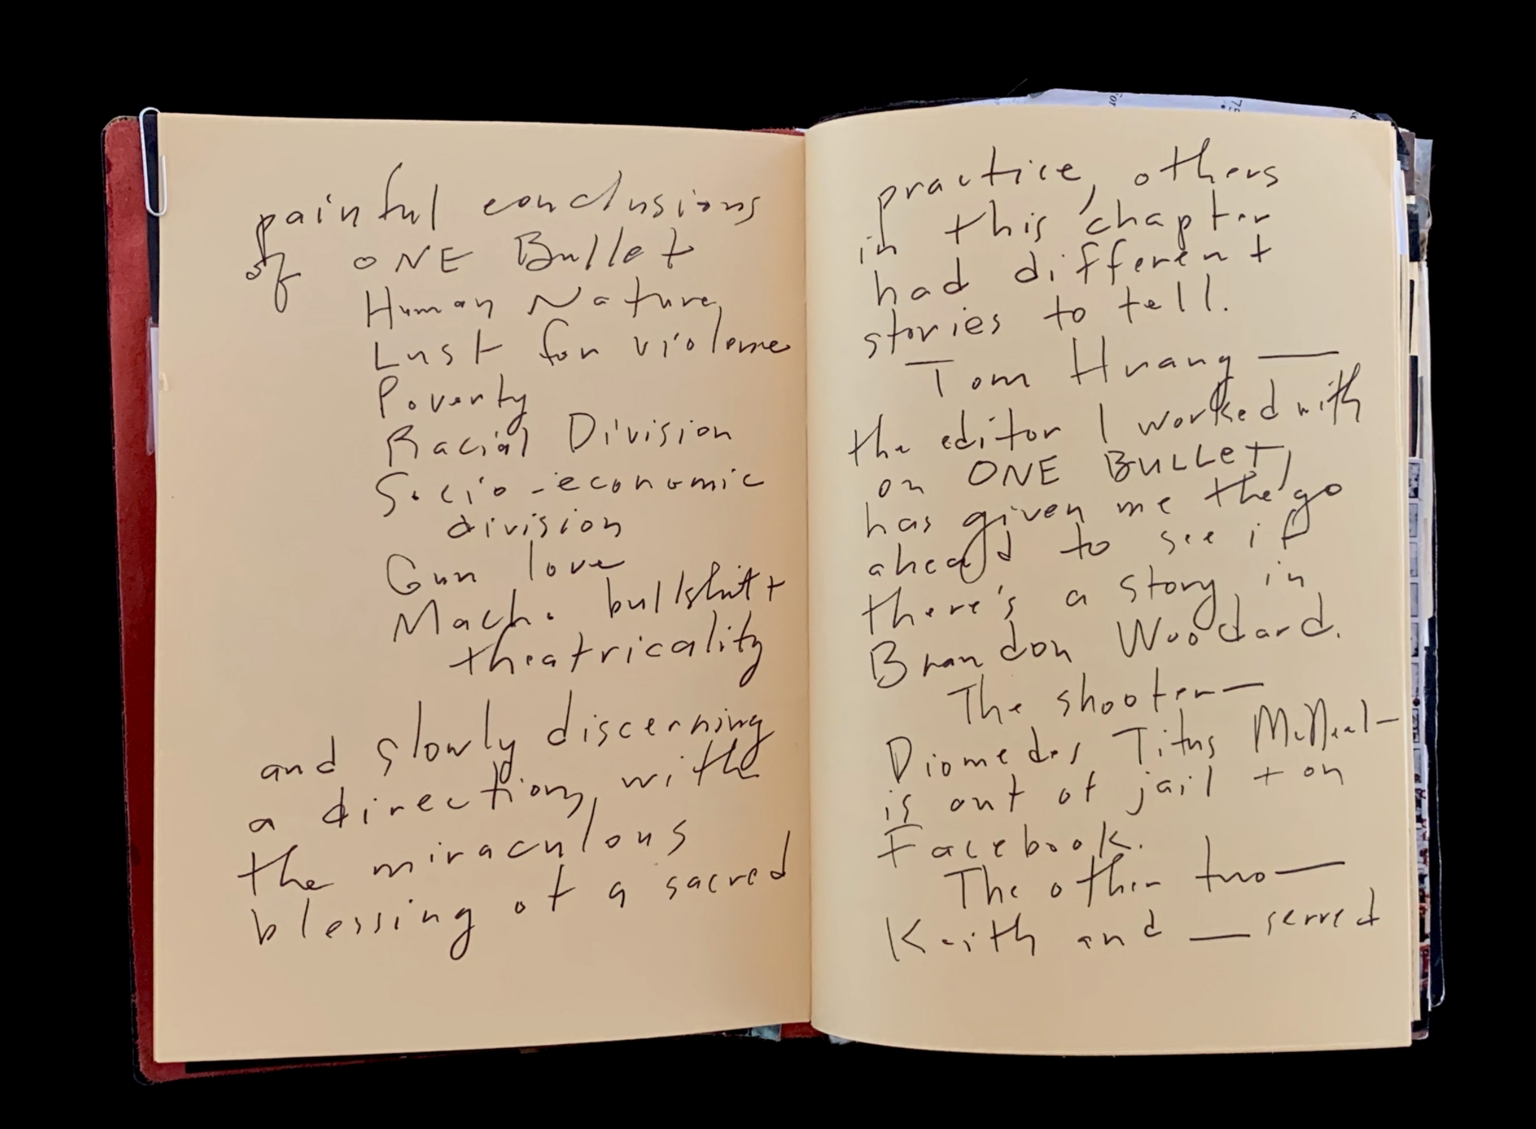 painful conclusions
of ONE Bullet
Human Nature
Lust for violence
Poverty
Racial Division
Socio-economic
division
Gun love
Macho bullshit +
theatricality
and slowly discerning
a direction, with
the miraculous
blessing of a sacred
practice, others
in this chapter
had different
stories to tell.
Tom Huang —
the editor I worked with
on ONE BULLET,
has given me the go
ahead to see if
there's a story in
Brandon Woodard.
The shooter —
Diomedes Titus McNeal —
is out of jail + on
Facebook.
The other two —
Keith and __ served